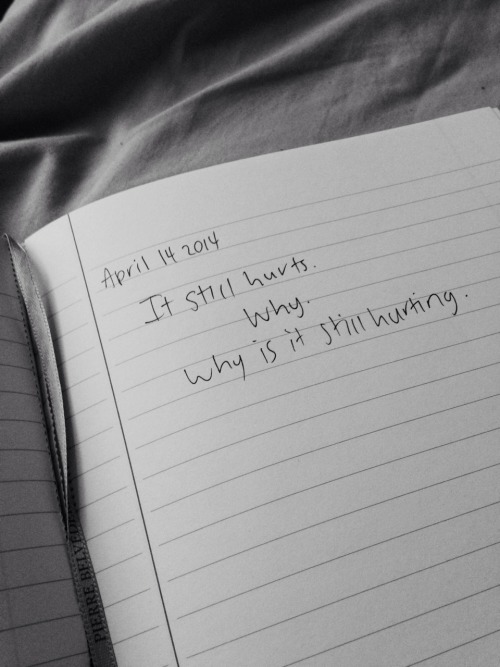 April 14 2014
It still hurts.
Why.
Why is it still hurting.